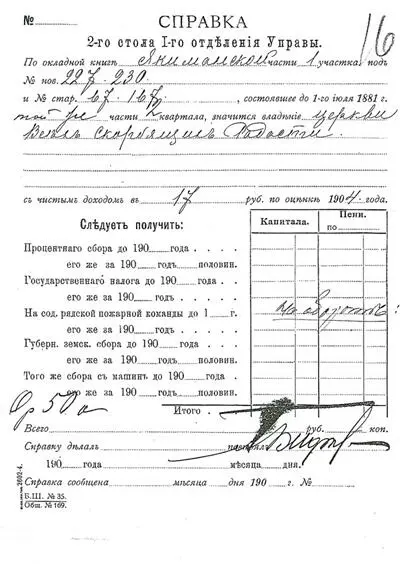 №
СПРАВКА
16
2-го стола I-го отдѣленія Управы.
По окладной книгѣ Якиманской части 1 участка подъ
№ нов. 227. 230
и № стар. 67. 167, состоявшее до 1-го іюля 1881 г.
той же части 2 квартала, значится владѣніе церкви
Всѣхъ Скорбящихъ Радости.
съ чистымъ доходомъ въ 17 руб. по оцѣнкѣ 1904 года.
Слѣдуетъ получить:
Капитала.
Пени.
по
Процентнаго сбора до 190 года
его же за 190 годъ половин.
Государственнаго налога до 190 года
его же за 190 годъ
На сод. рядской пожарной команды до 1 г.
на оборотѣ
его же за 190 годъ половин.
Губерн. земск. сбора до 190 года
его же за 190 годъ половин.
Того же сбора съ машинъ до 190 года
его же за 190 годъ половин.
Итого
Всего руб. коп.
Справку дѣлалъ
190 года мѣсяца дня.
Справка сообщена мѣсяца дня 190 г. №
Б.Ш. № 35.
Общ. № 169.